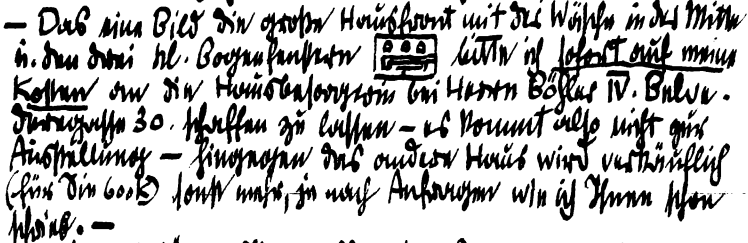 — Das eine Bild die große Hausfront mit der Wäsche in der Mitte
u. den drei kl. Bogenfenstern bitte ich sofort auf meine
Kosten an die Hausbesorgerin bei Herrn Böhler IV. Belve-
deregasse 30. schaffen zu lassen – es kommt also nicht zur
Ausstellung — hingegen das andere Haus wird verkäuflich
(für Sie 600 K) sonst mehr, je nach Anfragen wie ich Ihnen schon
schrieb. —